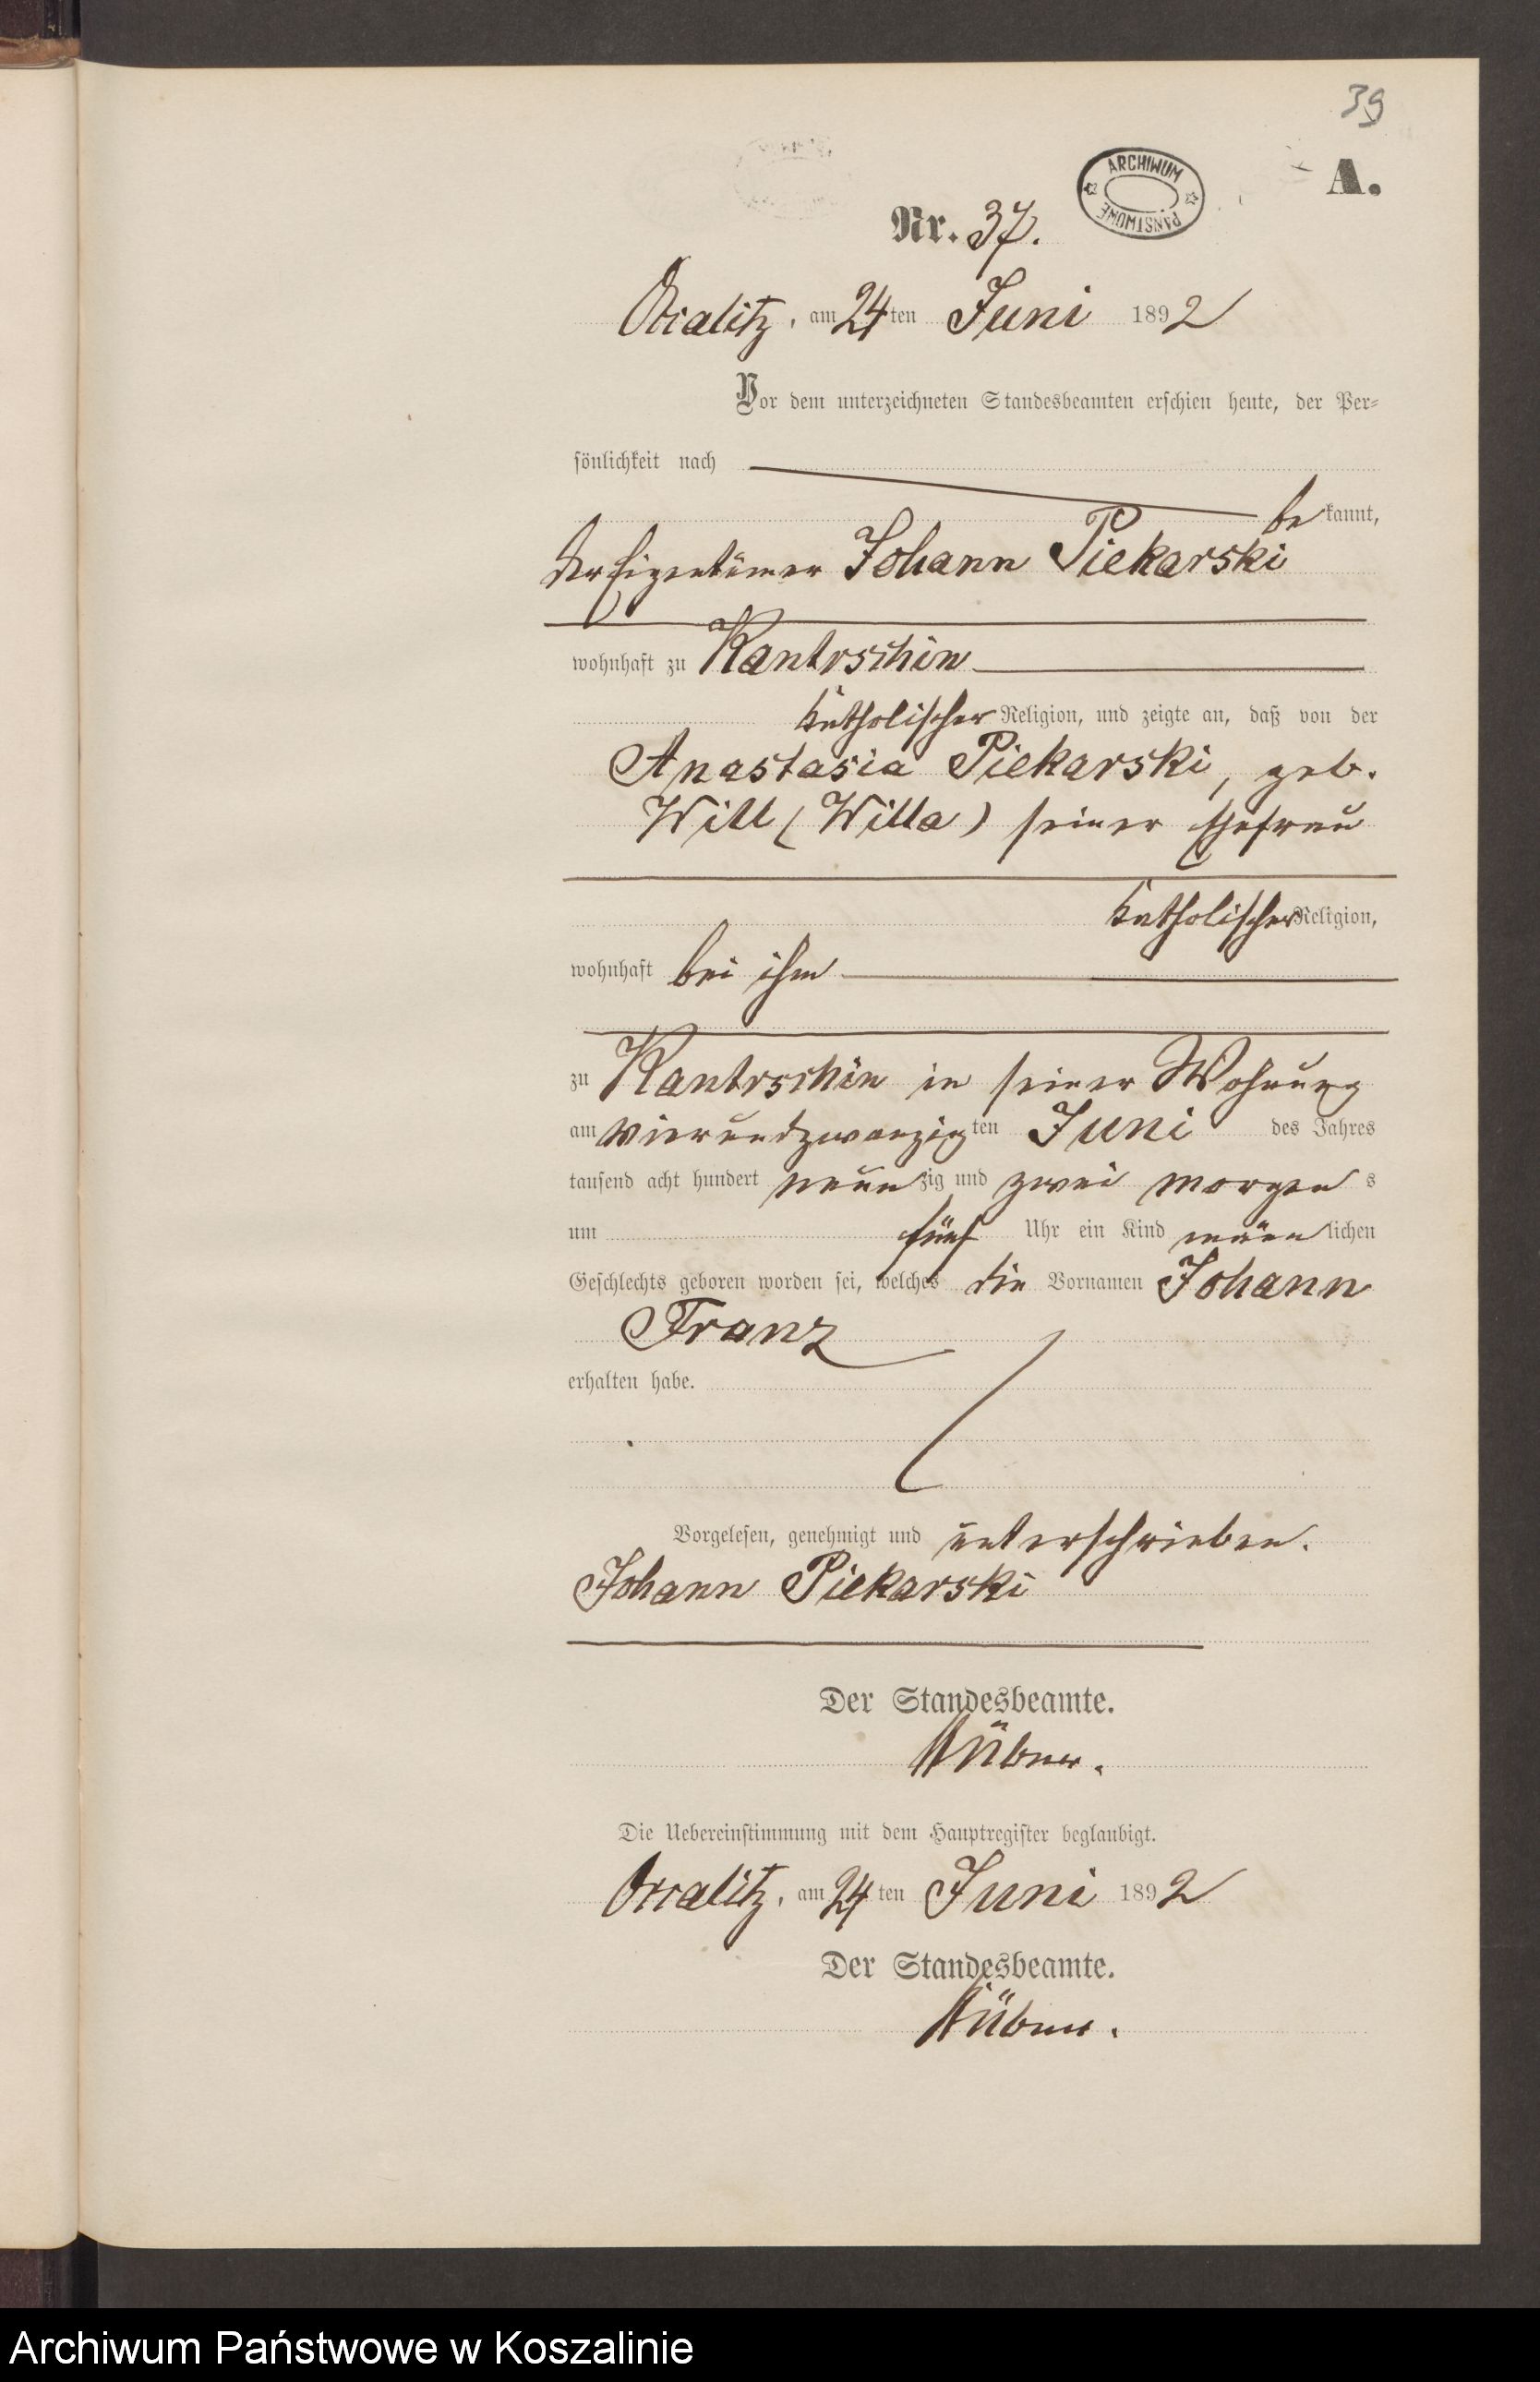 39
ARCHIWUM PAŃSTWOWE
A.
Nr. 37.
Occalitz, am 24ten Juni 1892
Vor dem unterzeichneten Standesbeamten erschien heute, der Per-
sönlichkeit nach
bekannt,
der Eigentümer Johann Piekarski
wohnhaft zu Kantrschin
katholischer Religion, und zeigte an, daß von der
Anastasia Piekarski, geb.
Will (Willa) seiner Ehefrau
katholischer Religion,
wohnhaft bei ihm
zu Kantrschin in seiner Wohnung
am vierundzwanzigten Juni des Jahres
tausend acht hundert neunzig und zwei morgens
um fünf Uhr ein Kind männlichen
Geschlechts geboren worden sei, welches die Vornamen Johann
Franz
erhalten habe.
Vorgelesen, genehmigt und unterschrieben.
Johann Piekarski
Der Standesbeamte.
Die Uebereinstimmung mit dem Hauptregister beglaubigt.
Occalitz, am 24ten Juni 1892
Der Standesbeamte.
Archiwum Państwowe w Koszalinie